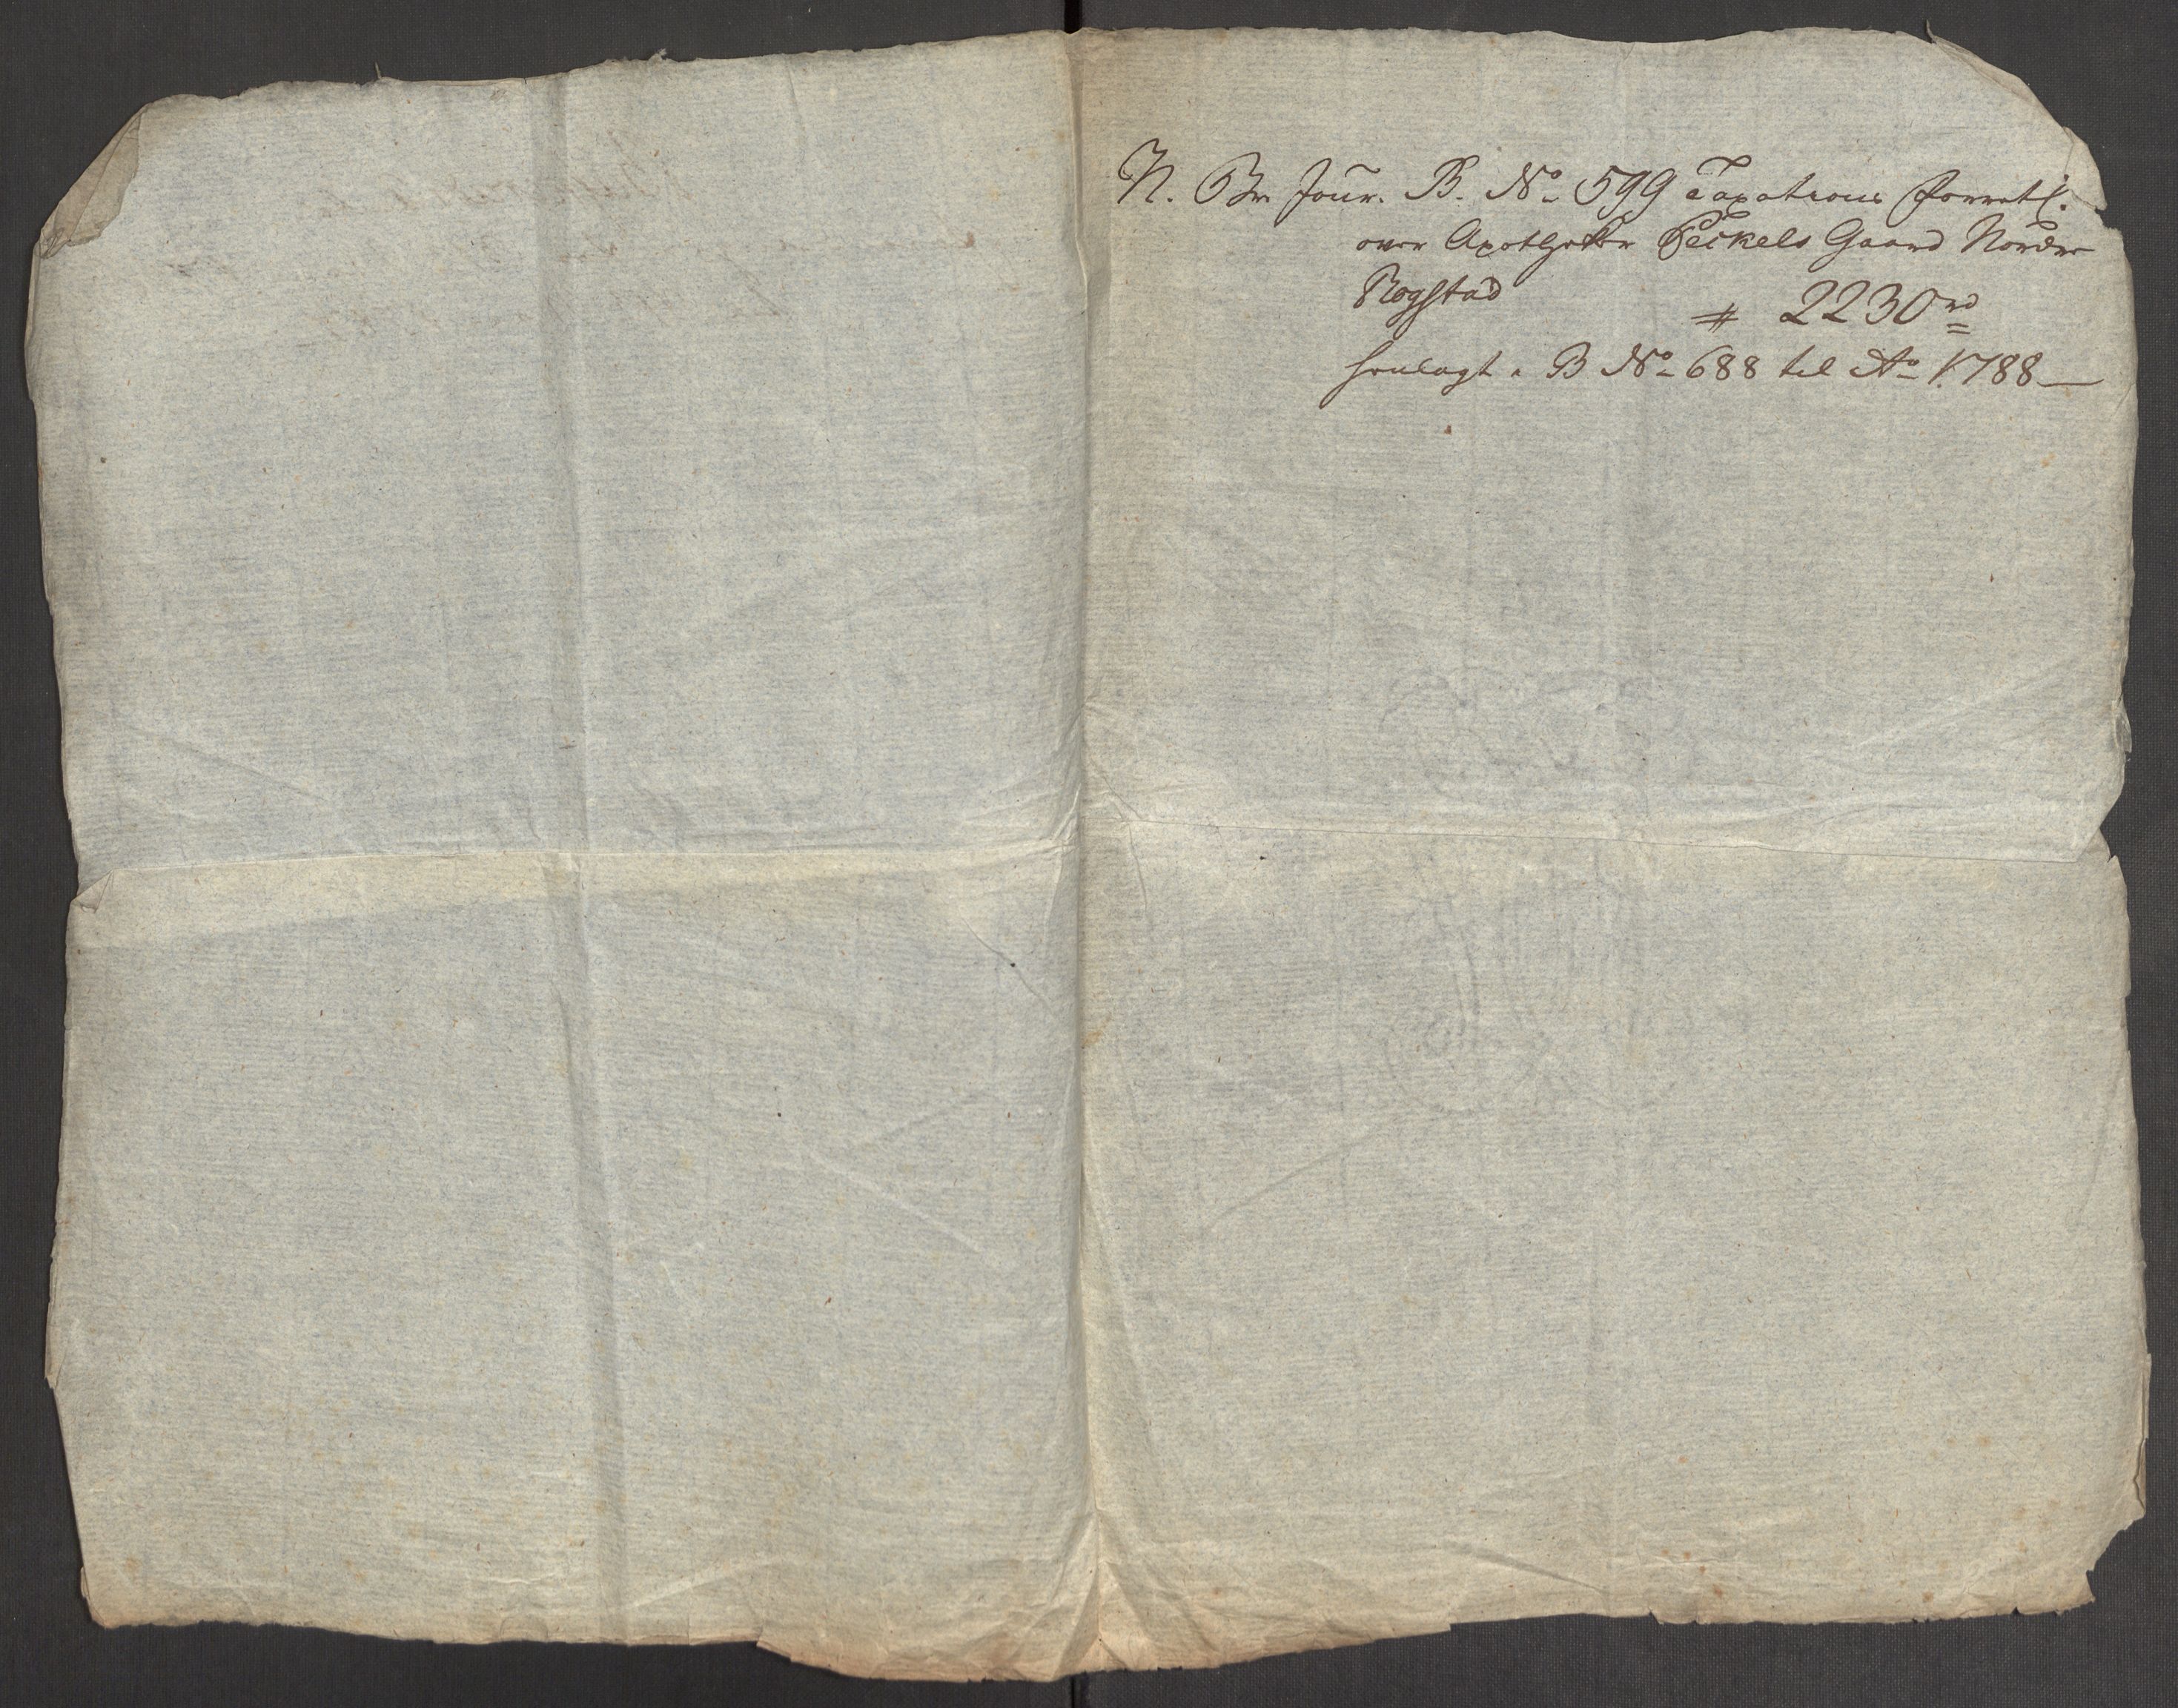 N. Br. Jour. B. No. 599 Taxations Forretn:
over Apotheker Peckels Gaard Nordre
Rogstad # 2230 rd
henlagt i B No. 688 til Ao. 1788